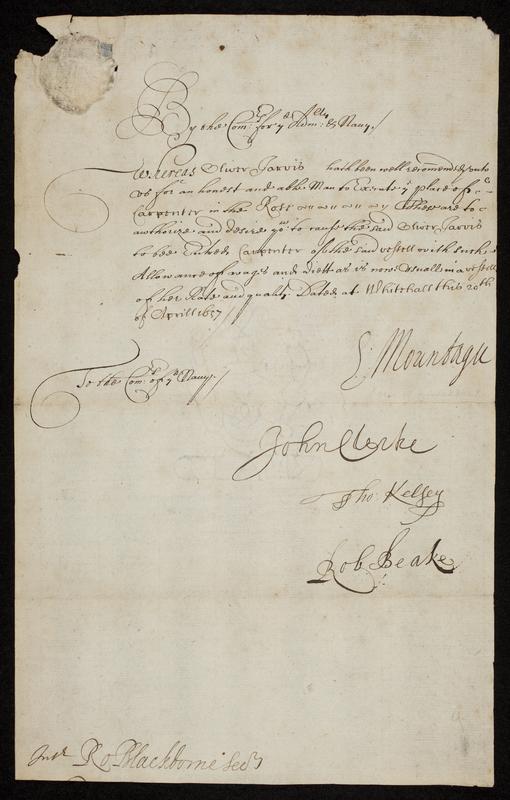 By the Com.rs for ye Adm.lty & Navy./
Whereas Oliver Jarvis hath been well recomended unto
us for an honest and able Man to Execute ye place of
Carpenter in the Rose These are to
authorize and desire you to cause the said Oliver Jarvis
to bee Entred Carpenter of the said vessell with such
Allowance of wages and diett as is now usuall in a vessell
of her Rate and quality. Dated at Whitehall this 20th
of Aprill 1657 //
E: Mountagu
To the Com.rs of ye Navy./
John Clerke
Tho: Kelsey
Rob Beake
Ro Blackborne Secry